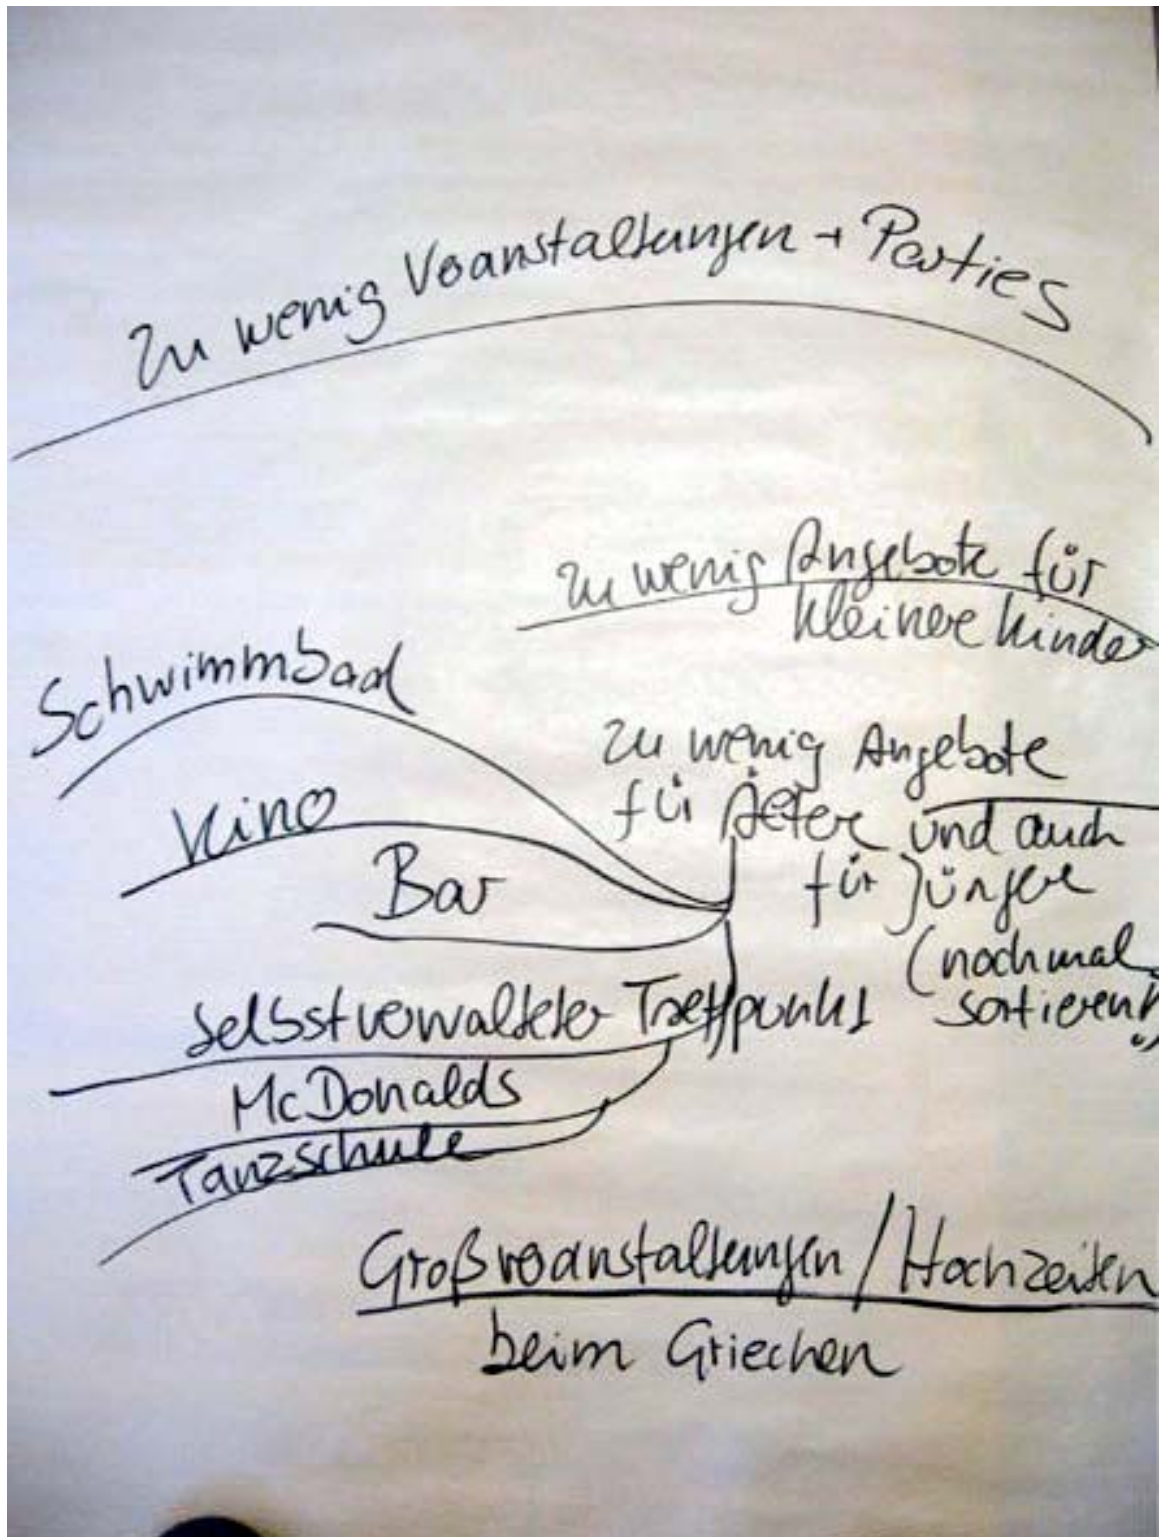 Zu wenig Veranstaltungen + Parties
Zu wenig Angebote für
kleinere Kinder
Schwimmbad
Kino
Bar
zu wenig Angebote
für Ältere und auch
für Jüngere
(nochmal
sortieren!)
selbstverwalteter Treffpunkt
McDonalds
Tanzschule
Großveranstaltungen / Hochzeiten
beim Griechen